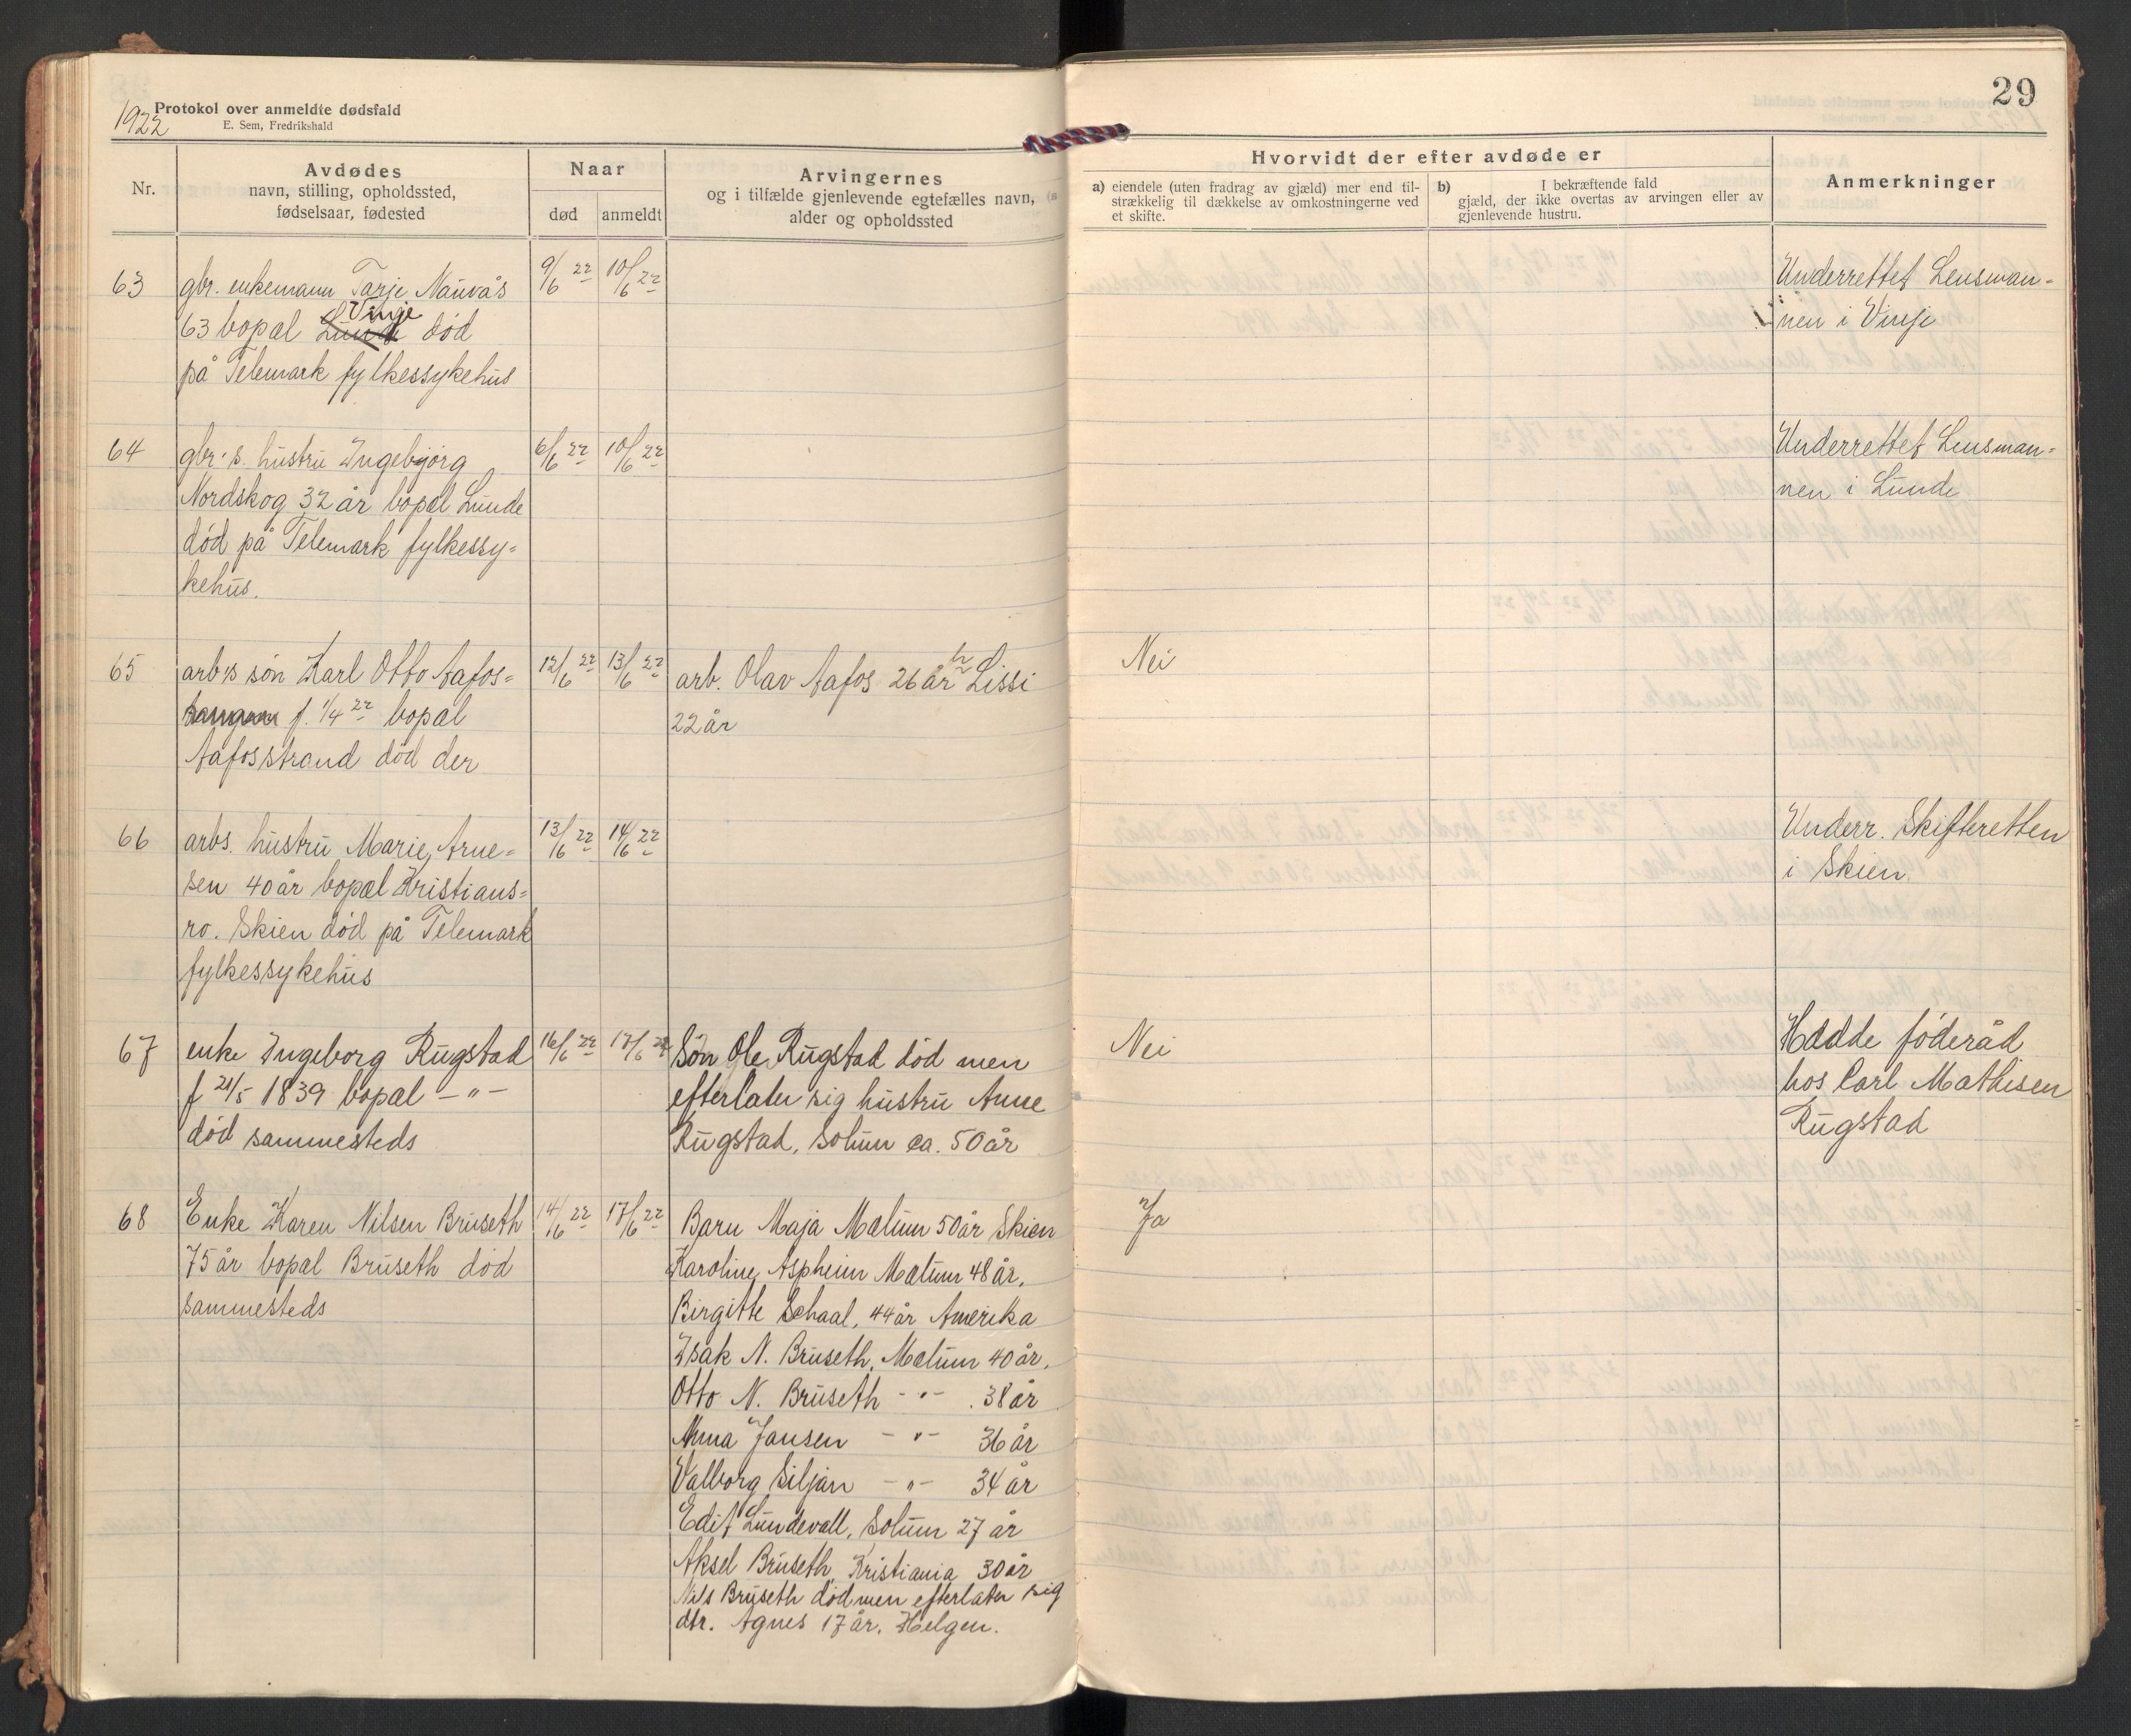 1922
Protokol over anmeldte dødsfald
E. Sem, Fredrikshald
29
Nr.
Avdødes
navn, stilling, opholdssted,
fødselsaar, fødested
Naar
død
anmeldt
Arvingernes
og i tilfælde gjenlevende egtefælles navn,
alder og opholdssted
Hvorvidt der efter avdøde er
a) eiendele (uten fradrag av gjæld) mer end til-
strækkelig til dækkelse av omkostningerne ved
et skifte.
b) I bekræftende fald
gjæld, der ikke overtas av arvingen eller av
gjenlevende hustru.
Anmerkninger
63
gbr. enkemann Tarje Nauvås
63 bopal Lunde Vinje død
på Telemark fylkessykehus
9/6 22
10/6 22
Underrettet Lensman-
nen i Vinje
64
gbr's. hustru Ingebjørg
Nordskog 32 år bopæl Lunde
død på Telemark fylkessy-
kehus.
6/6 22
10/6 22
Underrettet Lensman-
nen i Lunde
65
arb's søn Karl Otto Aafos-
f. 1/4 22 bopal
Aafosstrand død der
12/6 22
13/6 22
arb. Olav Aafos 26 år h Lissi
22 år
Nei
66
arbs. hustru Marie Arne-
sen 40 år bopæl Kristians-
ro. Skien død på Telemark
fylkessykehus
13/6 22
14/6 22
Underr. Skifteretten
i Skien
67
enke Ingeborg Rugstad
f 21/5 1839 bopal - " -
død sammesteds
16/6 22
17/6 22
Søn Ole Rugstad død men
efterlater sig hustru Anne
Rugstad, Solum ca. 50 år
Nei
Hadde føderåd
hos Carl Mathisen
Rugstad
68
Enke Karen Nilsen Bruseth
75 år bopal Bruseth død
sammesteds
14/6 22
17/6 22
Barn Maja Mælum 50 år Skien
Karoline Aspheim Mælum 48 år.
Birgitte Schaal, 44 år Amerika
Isak N. Bruseth, Mælum 40 år.
Otto N. Bruseth - " - . 38 år
Anna Jansen - " - 36 år
Valborg Siljan - " - 34 år
Edit Lundevall, Solum 27 år
Aksel Bruseth, Kristiania 30 år
Nils Bruseth død men efterlater sig
dtr. Agnes 17 år. Helgen.
Ja